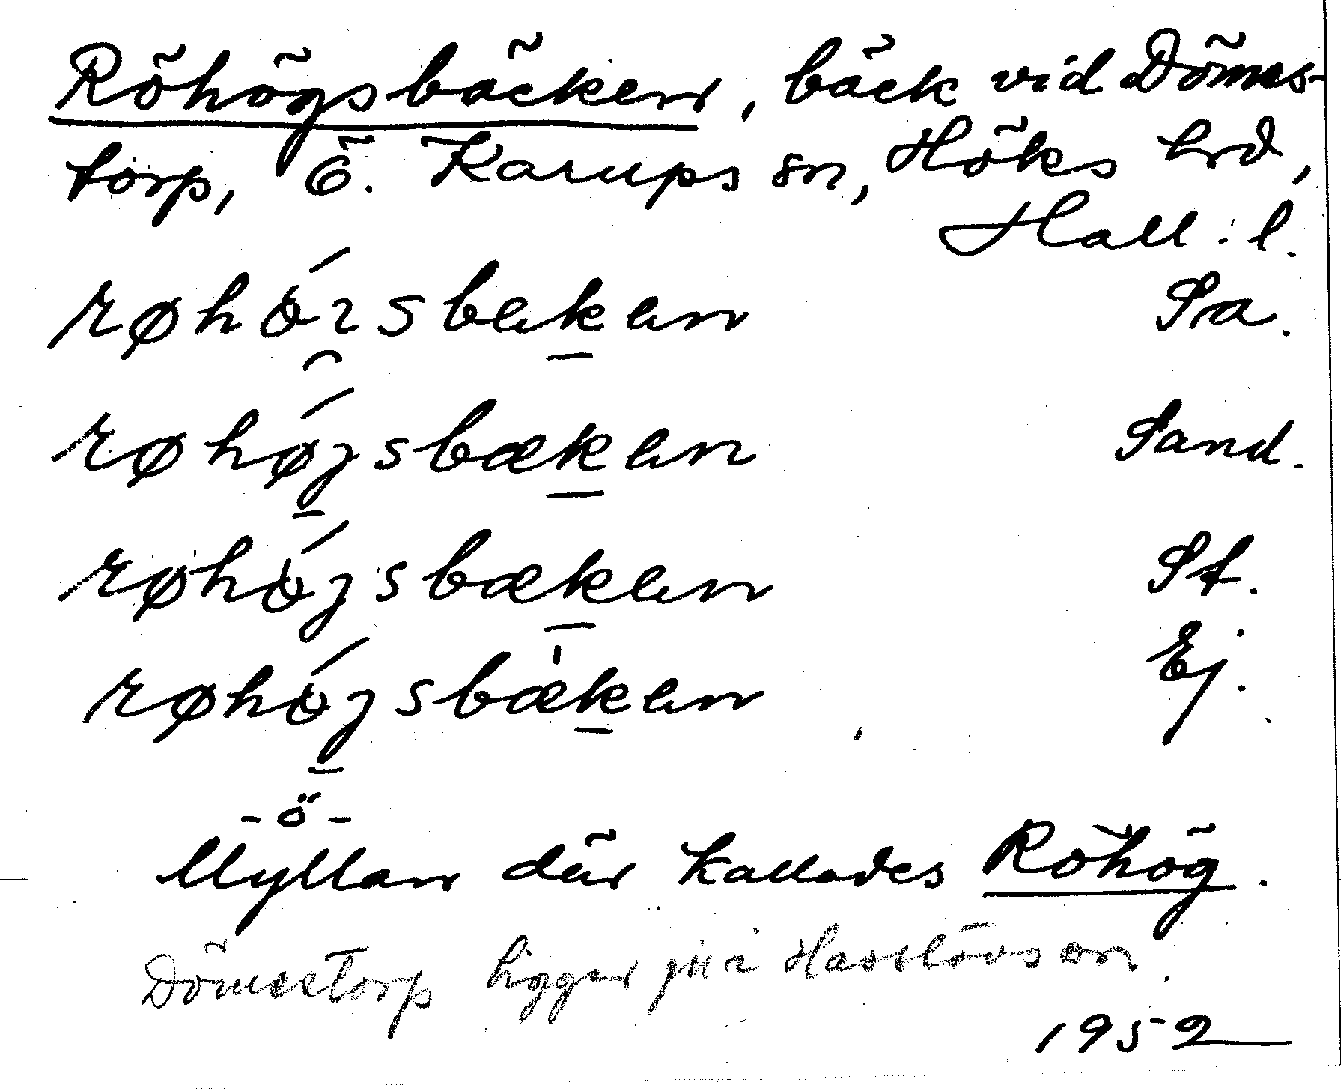 Röhögsbäcken, bäck vid Dömes-
torp, Ö. Karups sn, Höks hrd,
Hall. l.
røhózsbækæn Sa.
røhǿjsbækæn Sand.
røhójsbækæn St.
røhójsbækæn Ej.
-ö-
Myllan där kallades Röhög.
Dömestorp ligger ju i Hasslövs sn.
1952